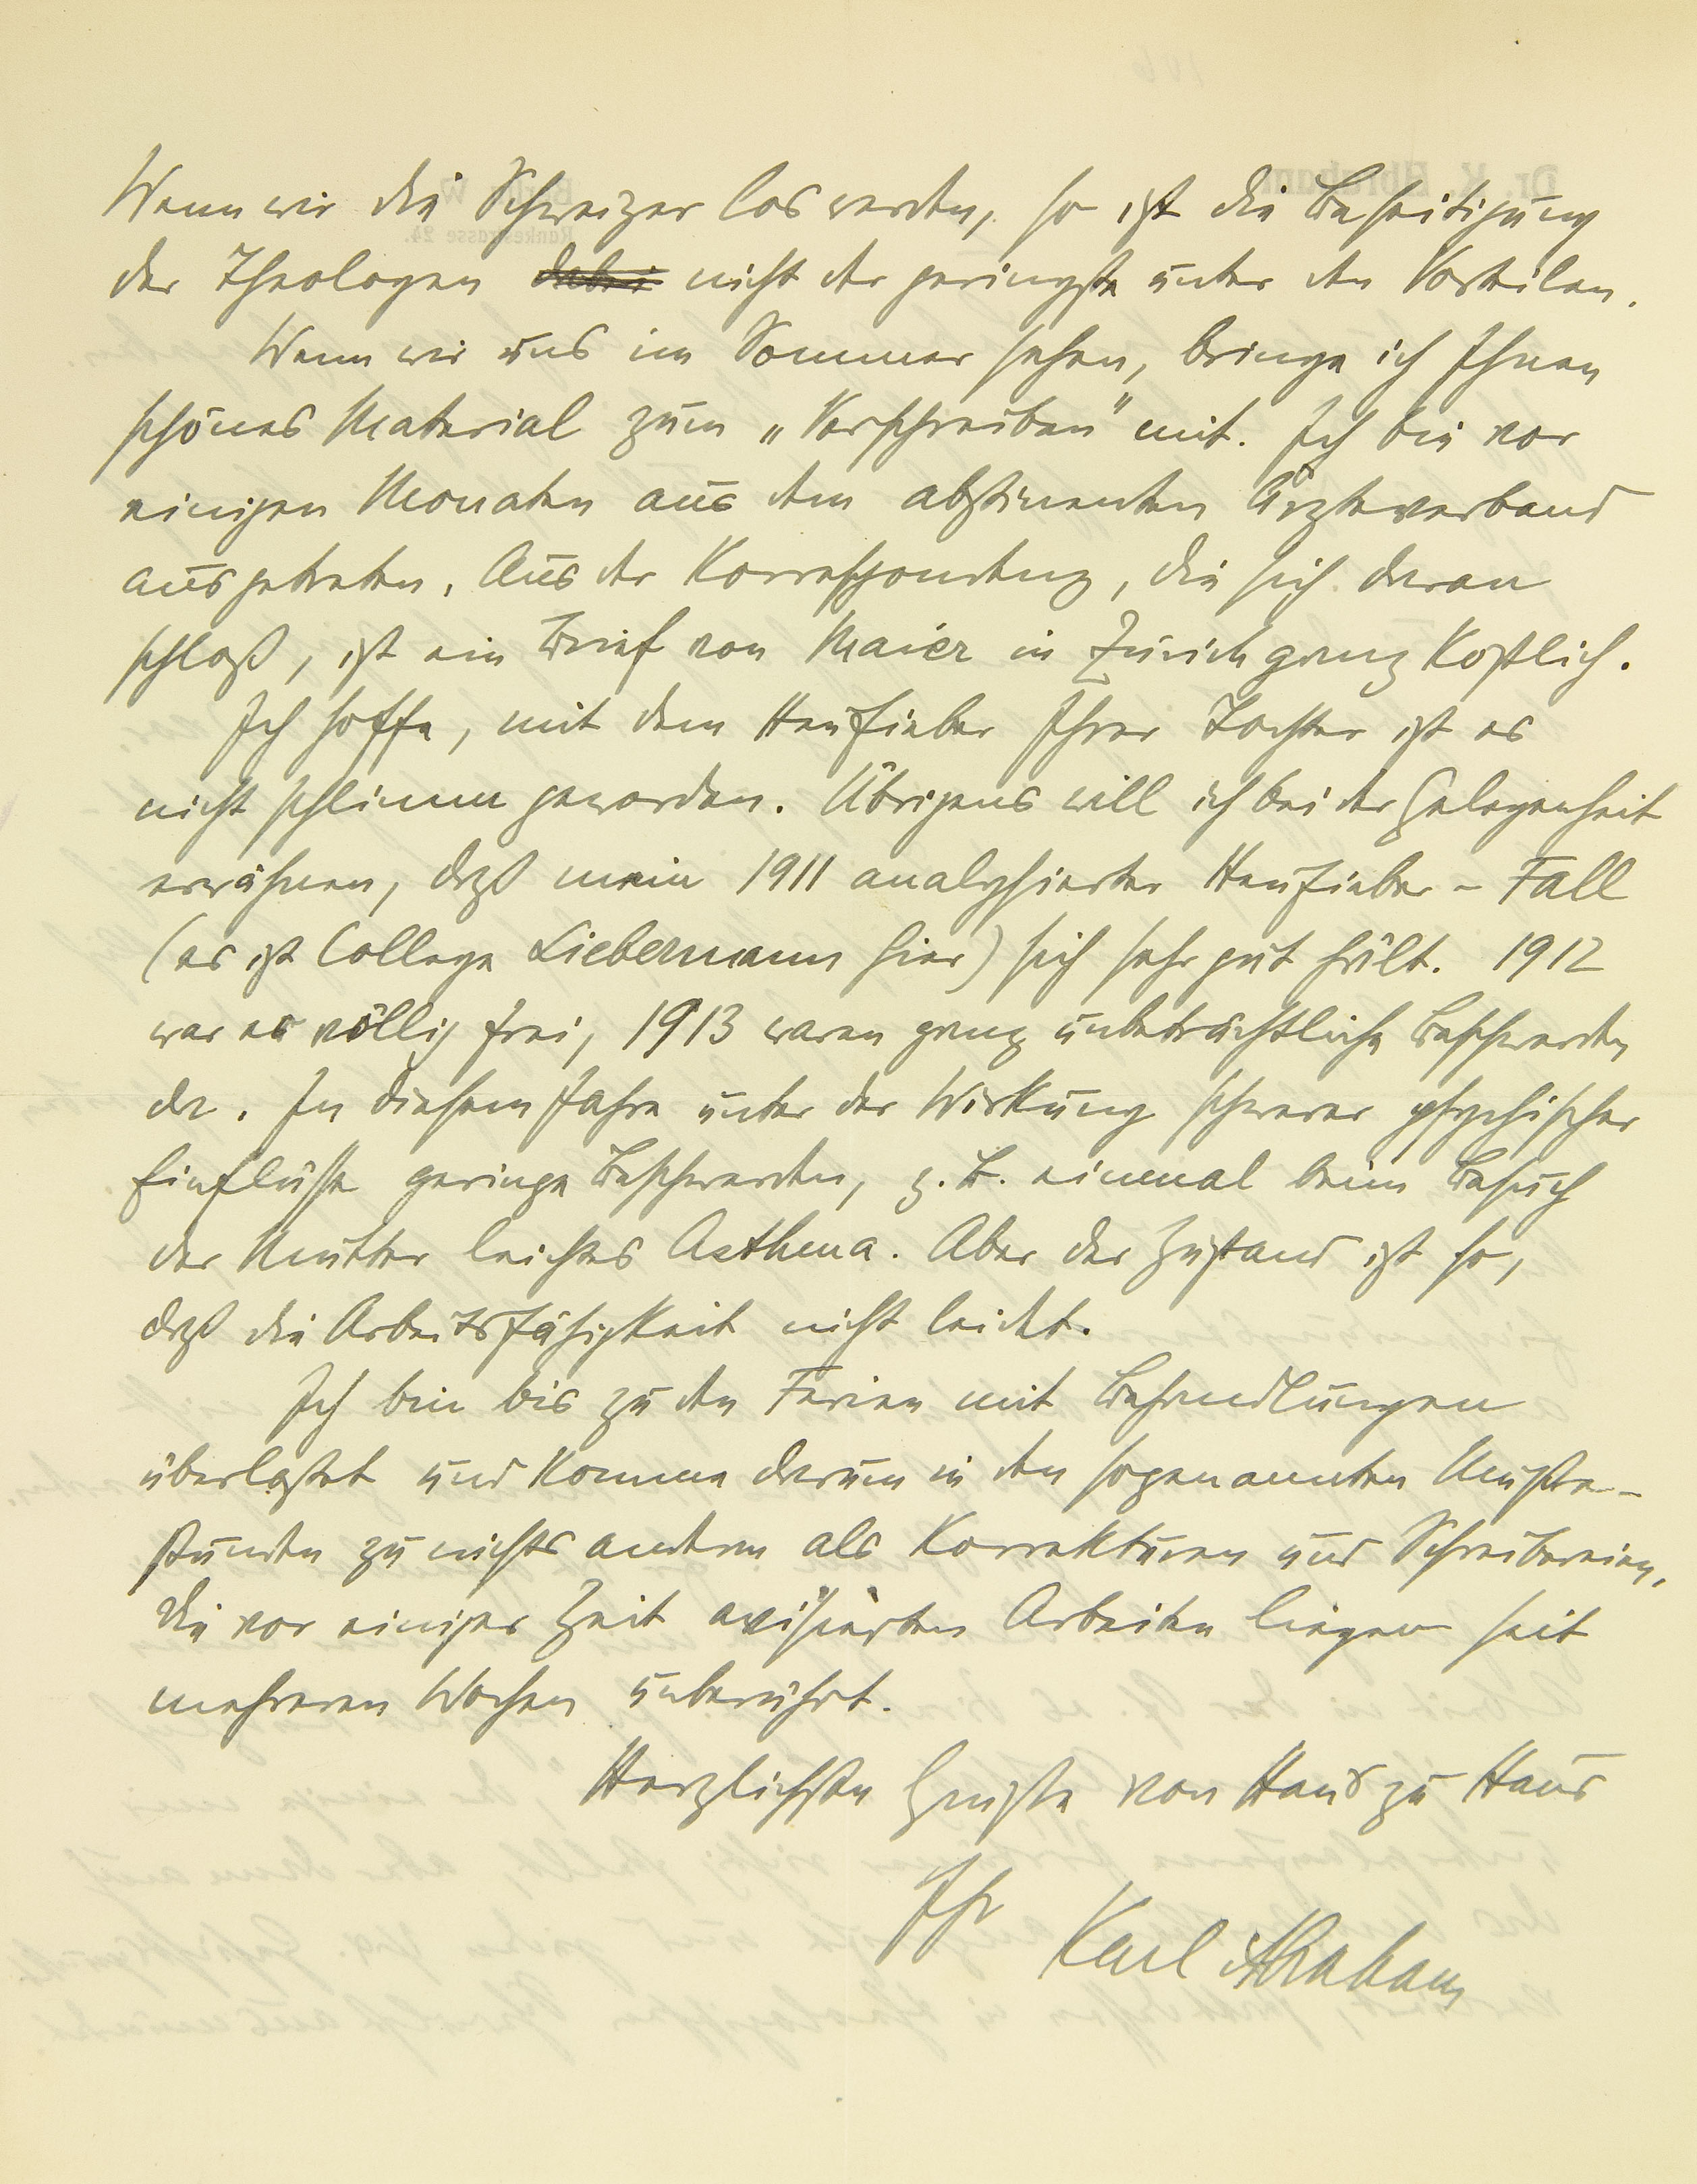 Wenn wir die Schweizer los werden, so ist die Beseitigung
der Theologen dabei nicht der geringste unter den Vorteilen.
Wenn wir uns im Sommer sehen, bringe ich Ihnen
schönes Material zum „Verschreiben" mit. Ich bin vor
einigen Monaten aus dem abstinenten Ärzteverband
ausgetreten. Aus der Korrespondenz, die sich daran
schloß, ist ein Brief von Maier in Zürich ganz köstlich.
Ich hoffe, mit dem Heufieber Ihrer Tochter ist es
nicht schlimm geworden. Übrigens will ich bei der Gelegenheit
erwähnen, daß mein 1911 analysierter Heufieber-Fall
(es ist College Liebermann hier) sich sehr gut hält. 1912
war er völlig frei, 1913 waren ganz unbeträchtliche Beschwerden
da. In diesem Jahre unter der Wirkung schwerer psychischer
Einflüsse geringe Beschwerden, z.B. einmal beim Besuch
der Mutter leichtes Asthma. Aber der Zustand ist so,
daß die Arbeitsfähigkeit nicht leidet.
Ich bin bis zu den Ferien mit Behandlungen
überlastet und komme darum in den sogenannten Muße-
stunden zu nichts anderm als Korrekturen und Schreibereien,
die vor einiger Zeit avisierten Arbeiten liegen seit
mehreren Wochen unberührt.
Herzlichste Grüße von Haus zu Haus
Ihr
Karl Abraham